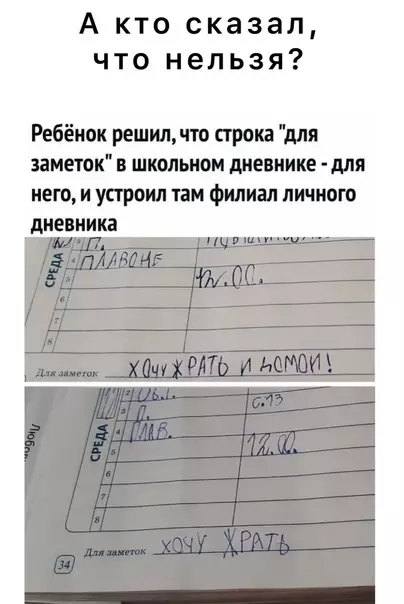 А кто сказал,
что нельзя?
Ребёнок решил, что строка "для
заметок" в школьном дневнике - для
него, и устроил там филиал личного
дневника
3 П.
СРЕДА
4 ПЛАВОНЕ
5 12.00.
6
7
8
Для заметок ХОЧУ ЖРАТЬ И ДОМОЙ!
Любов
СРЕДА
2 с.73
3 П.
4 ПЛАВ.
5 12.00.
6
7
8
34
Для заметок ХОЧУ ЖРАТЬ